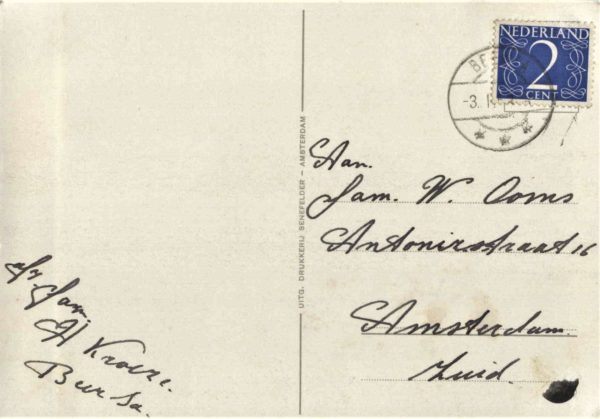 NEDERLAND
2
CENT
-3.
UITG. DRUKKERIJ SENEFELDER – AMSTERDAM
Aan.
Fam. W. Ooms
Antonisstraat 16
Amsterdam.
Zuid.
Fam.
H Kroeze.